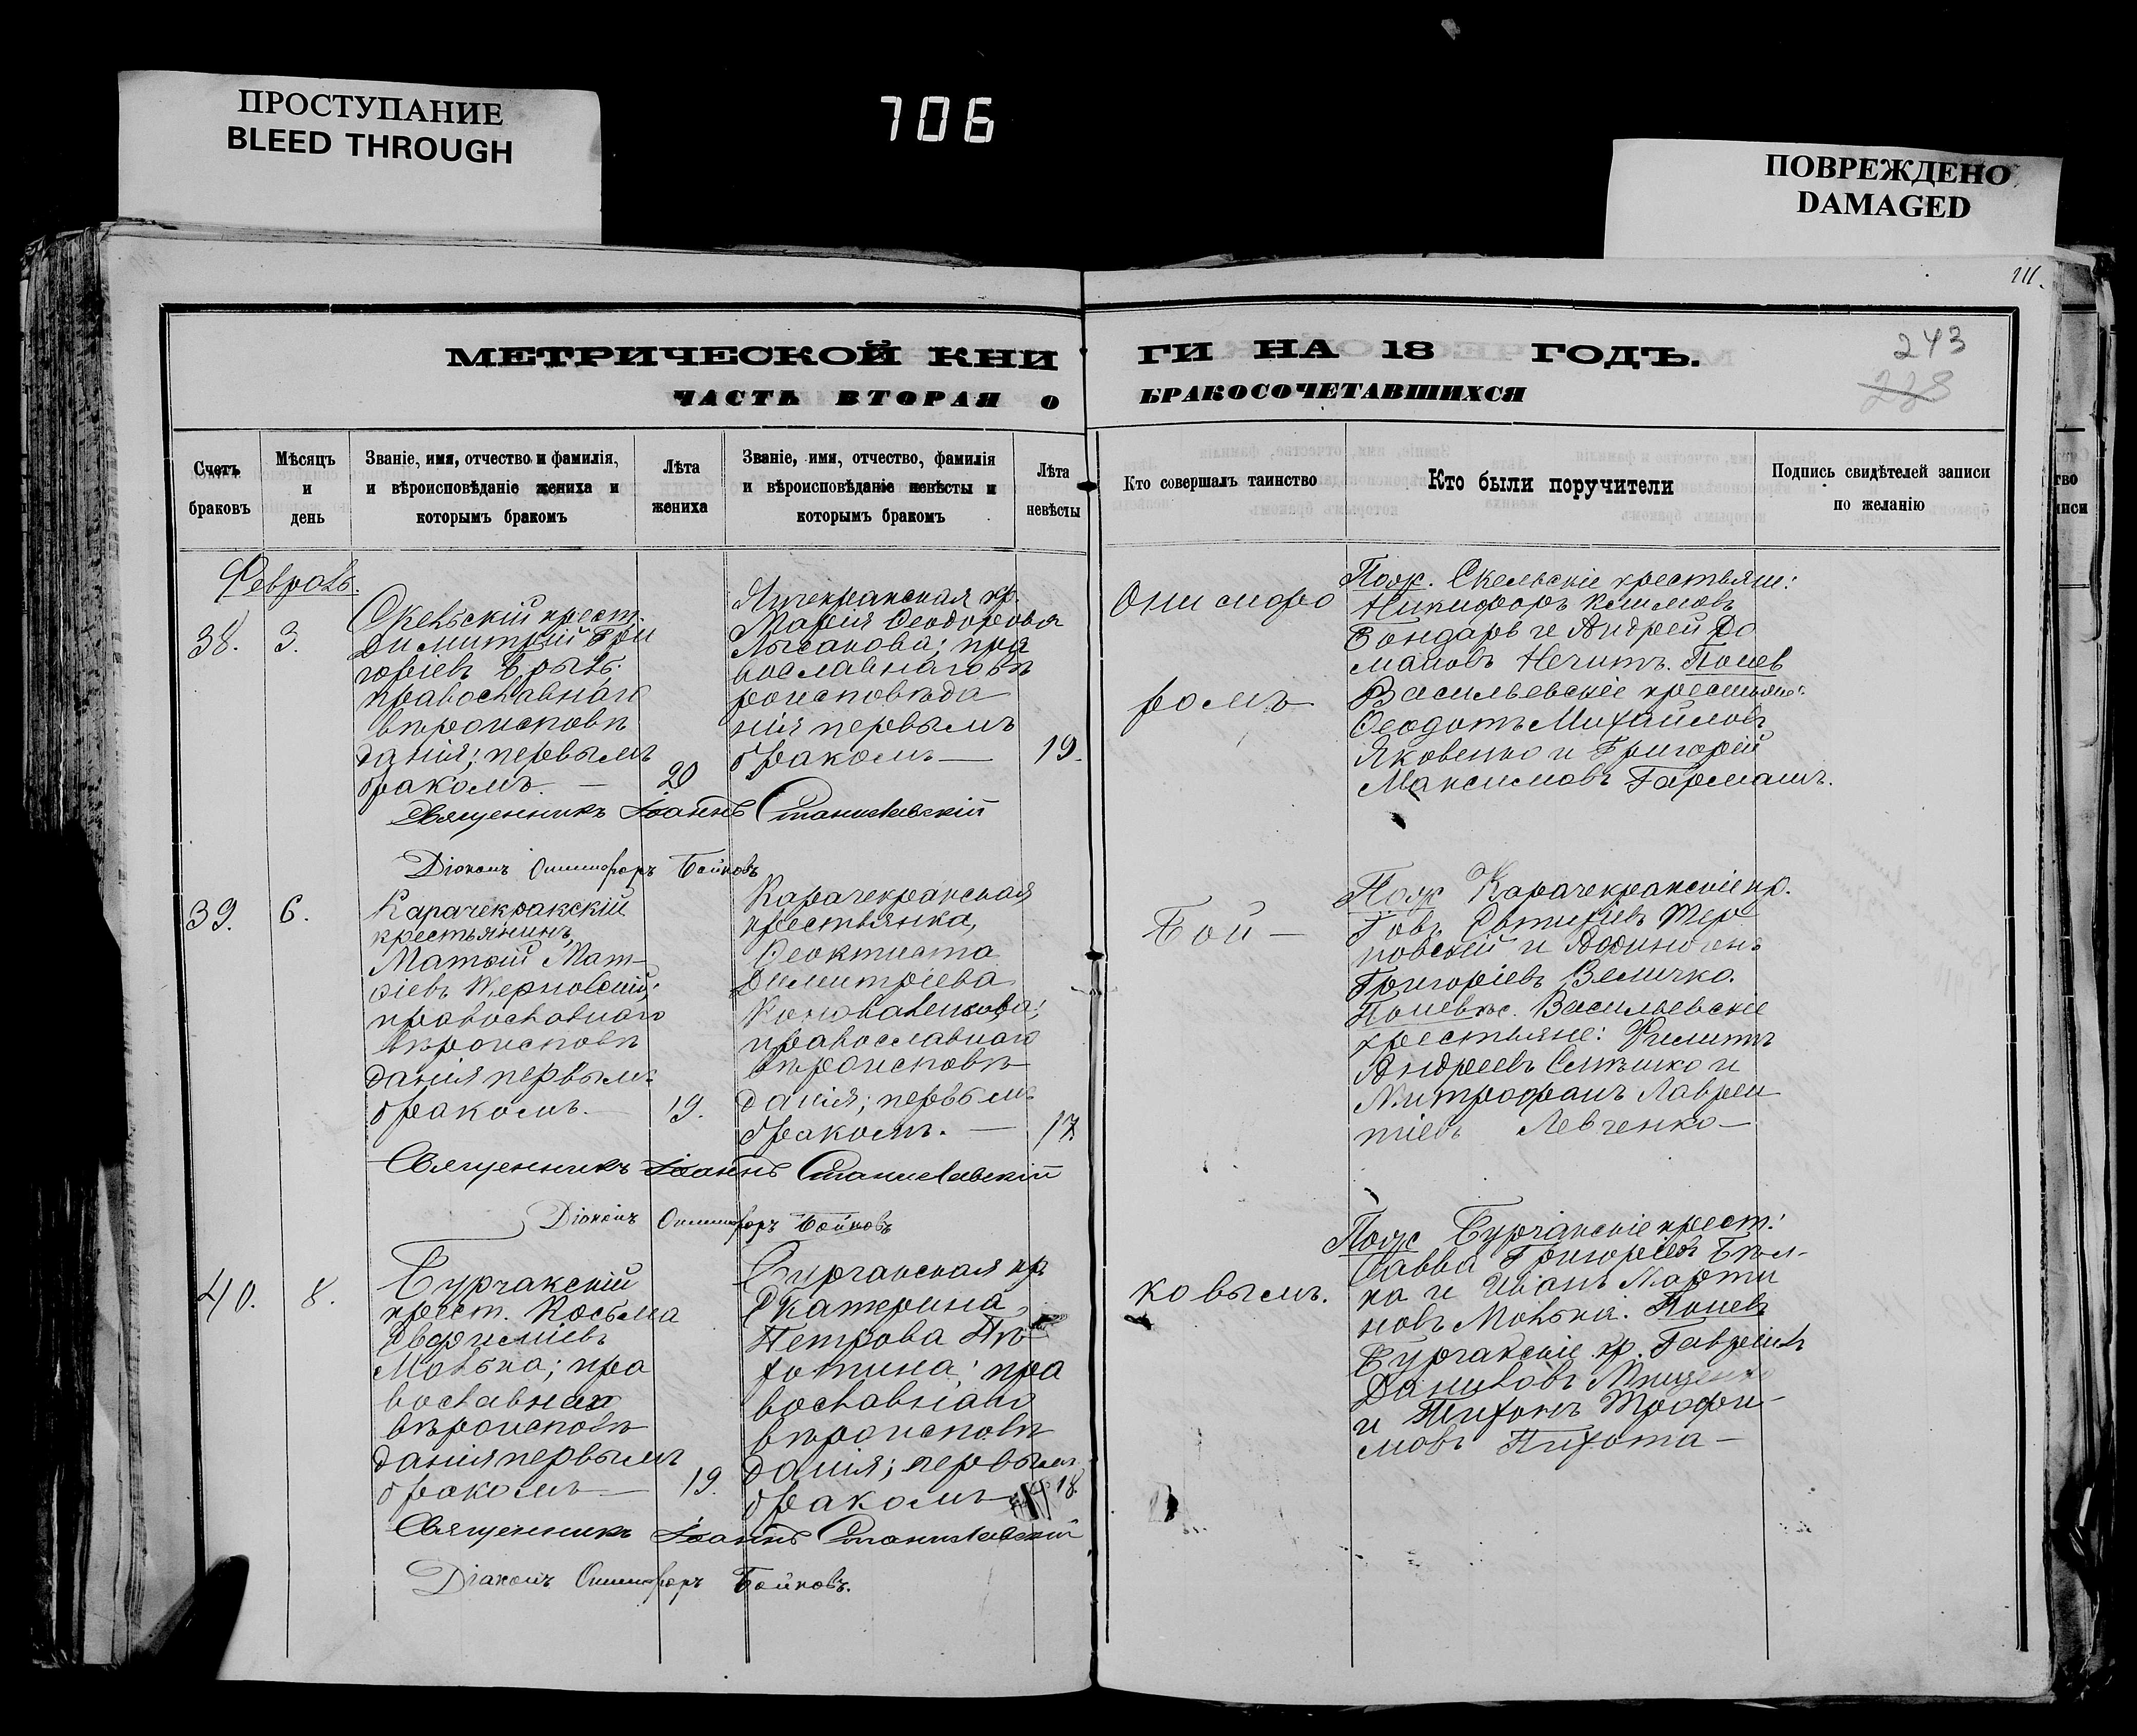 ПРОСТУПАНИЕ
BLEED THROUGH
706
ПОВРЕЖДЕНО
DAMAGED
111.
243
228
МЕТРИЧЕСКОЙ КНИ
ГИ НА 18 ГОДЪ.
ЧАСТЬ ВТОРАЯ О
БРАКОСОЧЕТАВШИХСЯ
Счетъ
браковъ
Мѣсяцъ
и
день
Званіе, имя, отчество и фамилія,
и вѣроисповѣданіе жениха и
которымъ бракомъ
Лѣта
жениха
Званіе, имя, отчество, фамилія
и вѣроисповѣданіе невѣсты и
которымъ бракомъ
Лѣта
невѣсты
Кто совершалъ таинство
Кто были поручители
Подпись свидѣтелей записи
по желанію
Февраль.
38.
3.
Скельскій крест.
Димитрій Гри
горіевъ
православнаго
вѣроисповѣ
данія; первымъ
бракомъ. —
20
Янчекракская кр.
Марія Ѳеодорова
пра
вославнаго вѣ
роисповѣда
нія первымъ
бракомъ —
19.
Онисифо
ромъ
Пож. Скельскіе крестьяне:
Никифоръ Климовъ
Бондарь и Андрей Ро
мановъ Нечитъ. Поневѣ
Васильевскіе крестьяне:
Ѳеодотъ Михайловъ
Яковенко и Григорій
Максимовъ Гармашъ.
Священникъ Іоаннъ Станиславскій
Діаконъ Онисифоръ Бойковъ
39.
6.
Карачекракскій
крестьянинъ,
Матѳій Мат-
ѳіевъ Терновскій;
православнаго
вѣроисповѣ
данія первымъ
бракомъ. —
19.
Карачекракская
крестьянка,
Ѳеоктиста
Димитріева
Коноваленкова;
православнаго
вѣроисповѣ
данія; первымъ
бракомъ. —
17
Бой —
Пож Карачекракскіе кр.
Іовъ Евтихіевъ Тер
новскій и
Григоріевъ Величко.
Поневѣс. Васильевскіе
крестьяне: Филиппъ
Андреевъ и
Митрофанъ Лаврен
тіевъ Левченко —
Священникъ Іоаннъ Станиславскій
Діаконъ Онисифоръ Бойковъ
40.
8.
Бурчакскій
крест. Косьма
Евфиміевъ
Молька; пра
вославнаго
вѣроисповѣ
данія первымъ
бракомъ —
19.
Бурчакская кр.
Екатерина
Петрова Пѣ
хотина; пра
вославнаго
вѣроисповѣ
данія; первымъ
бракомъ
18.
ковымъ.
Пож Бурчакскіе крест:
Савва Григоріевъ Бѣл-
ка и Иванъ Марти
новъ Молька. Поневѣ
Бурчакскіе кр. Гавріилъ
Даниловъ Мищенко
и Тихонъ Трофи-
мовъ Пихота —
Священникъ Іоаннъ Станиславскій
Діаконъ Онисифоръ Бойковъ.